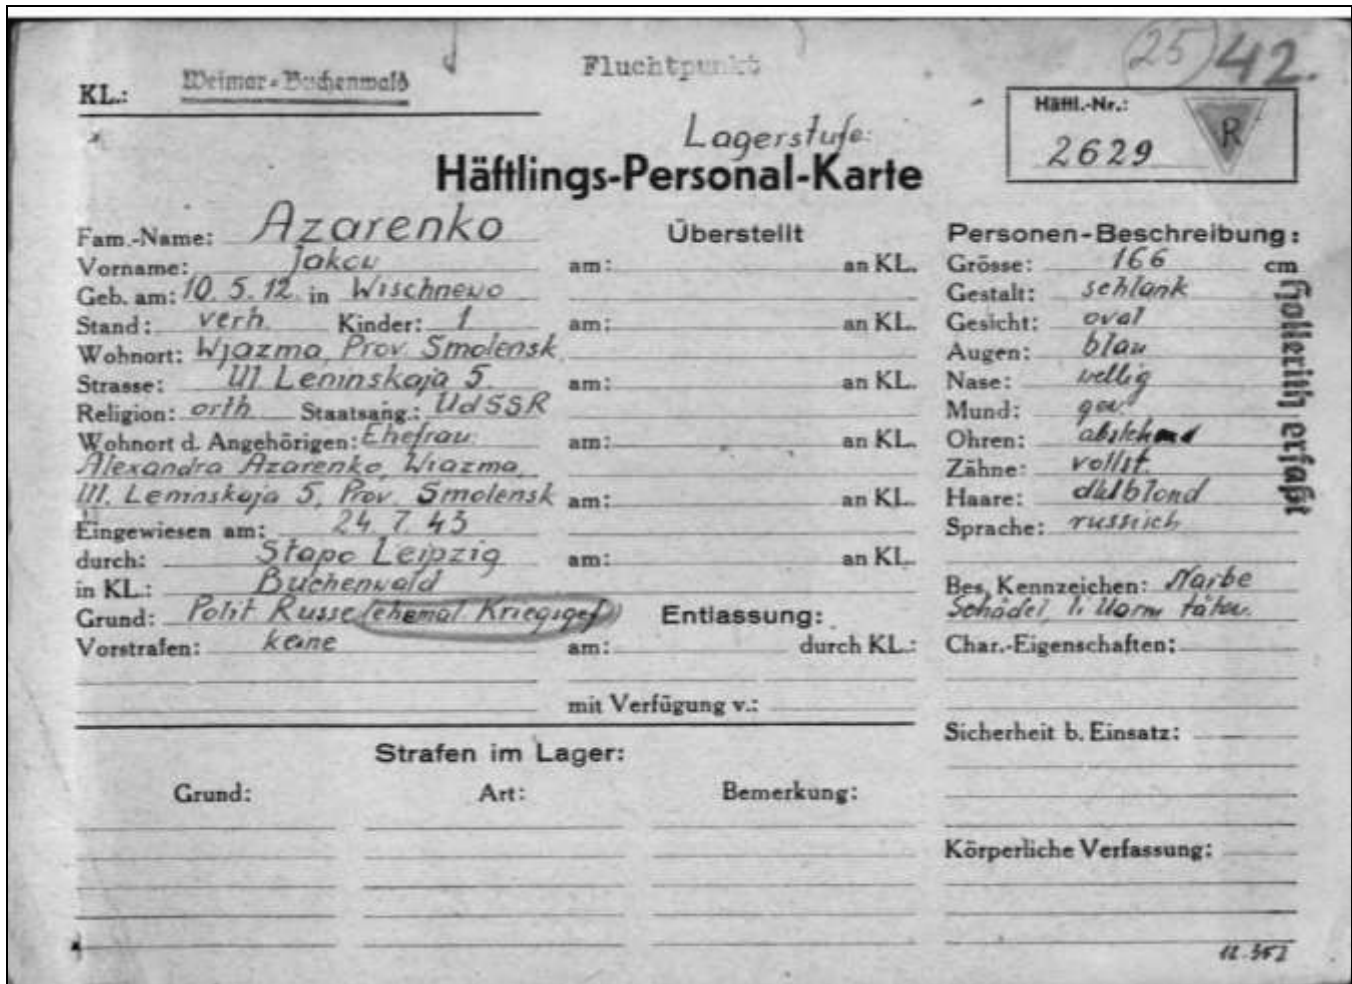 (25) 42.
KL.: Weimar-Buchenwald
Fluchtpunkt
Häftl.-Nr.:
2629
R
Lagerstufe:
Häftlings-Personal-Karte
Fam.-Name: Azarenko
Vorname: Jakow
Geb. am: 10. 5. 12. in Wischnewo
Stand: verh. Kinder: 1
Wohnort: Wjazma, Prov. Smolensk
Strasse: Ul Leninskaja 5.
Religion: orth. Staatsang.: UdSSR
Wohnort d. Angehörigen: Ehefrau:
Alexandra Azarenko, Wiazma,
Ul. Leninskaja 5, Prov. Smolensk
Eingewiesen am: 24. 7. 43
durch: Stapo Leipzig
in KL.: Buchenwald
Grund: Polit Russe (ehemal Kriegsgef)
Vorstrafen: keine
Überstellt
am: an KL.
am: an KL.
am: an KL.
am: an KL.
am: an KL.
am: an KL.
Entlassung:
am: durch KL.:
mit Verfügung v.:
Personen-Beschreibung:
Grösse: 166 cm
Gestalt: schlank
Gesicht: oval
Augen: blau
Nase: wellig
Mund: gew.
Ohren: abstehend
Zähne: vollst.
Haare: dklblond
Sprache: russisch
Bes. Kennzeichen: Narbe
Schädel, l. Uarm tätow.
Char.-Eigenschaften:
Sicherheit b. Einsatz:
Körperliche Verfassung:
Hollerith erfaßt
Strafen im Lager:
Grund: Art: Bemerkung: